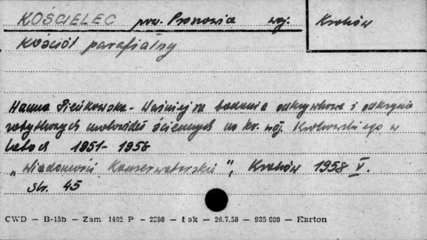 KOŚCIELEC pow. Proszowice woj. Kraków
Kościół parafialny
Hanna Pieńkowska - Ważniejsze badania odkrywkowe i odkrycia
zabytkowych malowideł ściennych na ter. woj. Krakowskiego w
latach 1951 - 1956
„Wiadomości Konserwatorskie", Kraków 1958 V.
str. 45
CWD — B-15b — Zam 1402 P — 2556 — Łsk — 26.7.58 — 935 000 — Karton